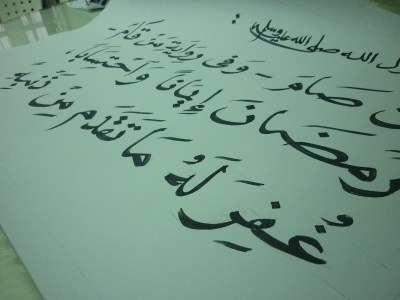 ول الله صلى الله عليه وسلم :
ن صَامَ - وَفِي رِوَايَةٍ مَنْ قَامَ -
رَمَضَانَ إِيمَانًا وَاحْتِسَابًا ،
غُفِرَ لَهُ مَا تَقَدَّمَ مِنْ ذَنْبِهِ